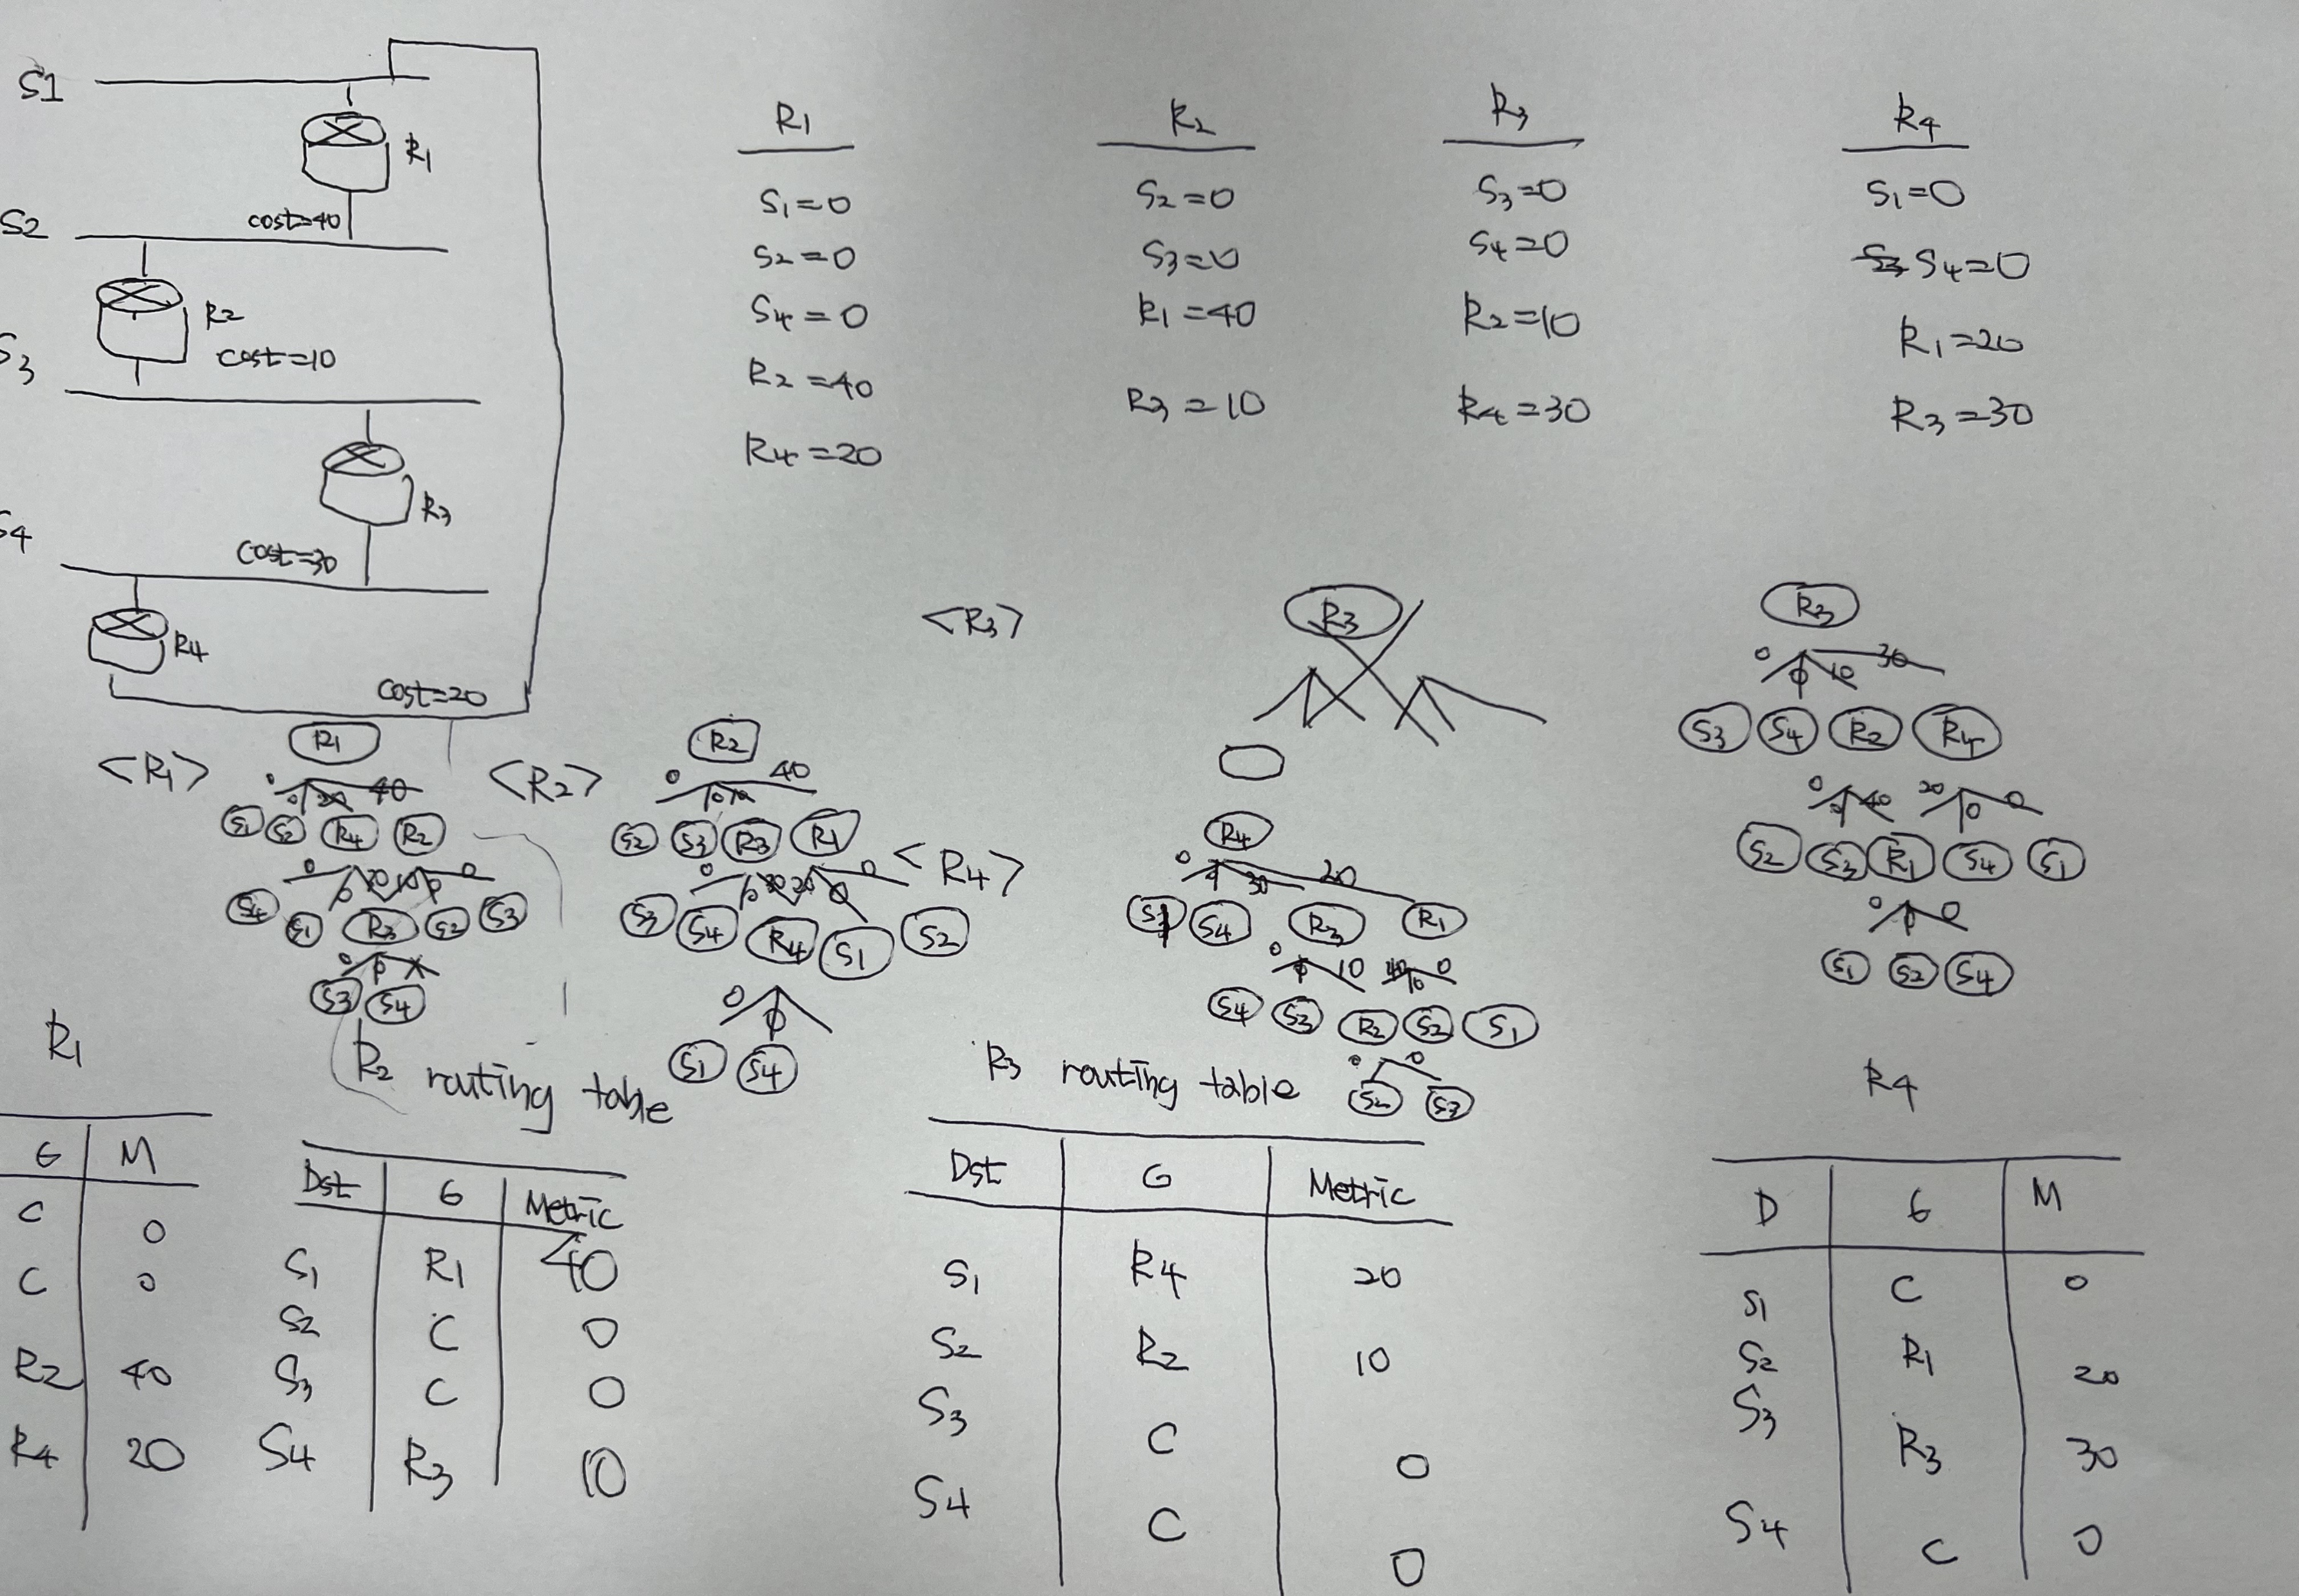 S1
R1
cost=40
S2
R2
cost=10
S3
R3
cost=30
S4
R4
cost=20
R1
S1=0
S2=0
S4=0
R2=40
R4=20
R2
S2=0
S3=0
R1=40
R3=10
R3
S3=0
S4=0
R2=10
R4=30
R4
S1=0
S4=0
R1=20
R3=30
<R1>
R1
0 0 20 40
S1 S2 R4 R2
0 0 10 0 0
S4 S1 R3 S2 S3
0 0
S3 S4
<R2>
R2
0 0 10 40
S2 S3 R3 R1
0 0 30 20 0 0
S3 S4 R4 S1 S2
0 0
S1 S4
<R3>
R3
R3
0 0 10 30
S3 S4 R2 R4
0 0 40 20 0 0
S2 S3 R1 S4 S1
0 0 0
S1 S2 S4
<R4>
R4
0 0 30 20
S1 S4 R3 R1
0 0 10 40 0 0
S4 S3 R2 S2 S1
0 0
S2 S3
R1
G M
C 0
C 0
R2 40
R4 20
R2 routing table
Dst G Metric
S1 R1 40
S2 C 0
S3 C 0
S4 R3 10
R3 routing table
Dst G Metric
S1 R4 20
S2 R2 10
S3 C 0
S4 C 0
R4
D G M
S1 C 0
S2 R1 20
S3 R3 30
S4 C 0